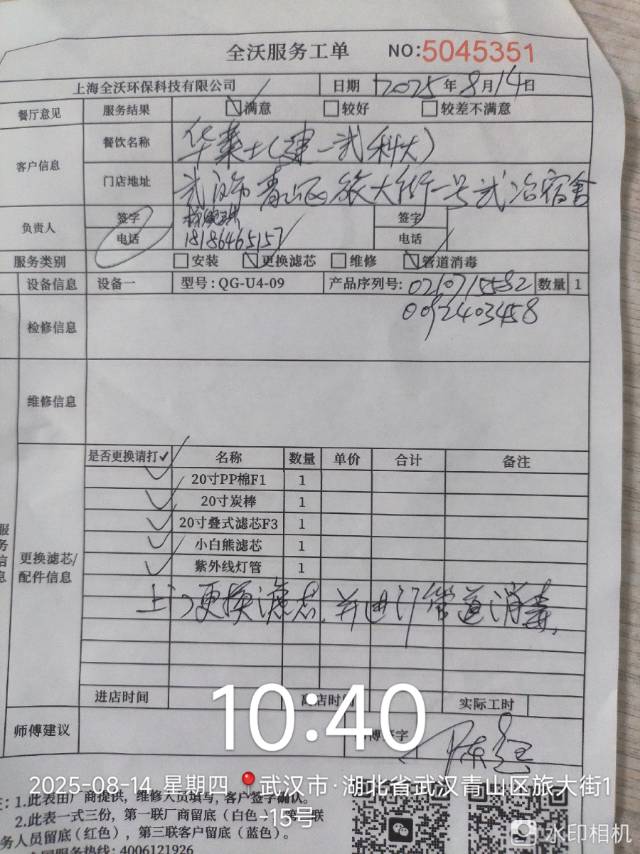 全沃服务工单 NO:5045351
上海全沃环保科技有限公司 日期 2025年8月14日
餐厅意见 服务结果 满意 较好 较差不满意
客户信息 餐饮名称 华莱士(建一武科大)
门店地址 武汉市青山区旅大街一号武冶宿舍
负责人 签字 签字
电话 18186465157 电话
服务类别 安装 更换滤芯 维修 管道消毒
设备信息 设备一 型号:QG-U4-09 产品序列号: 0210715582 数量 1
0092403458
检修信息
维修信息
是否更换请打✓ 名称 数量 单价 合计 备注
✓ 20寸PP棉F1 1
✓ 20寸炭棒 1
✓ 20寸叠式滤芯F3 1
✓ 小白熊滤芯 1
✓ 紫外线灯管 1
更换滤芯/
配件信息
上门更换滤芯,并进行管道消毒.
进店时间 实际工时
10:40
师傅建议
2025-08-14 星期四 武汉市·湖北省武汉青山区旅大街1
-15号
1.此表由厂商提供，维修人员填写，客户签字确认。
2.此表一式三份，第一联厂商留底(白色
务人员留底(红色)，第三联客户留底(蓝色)。
全国服务热线: 4006121926
水印相机